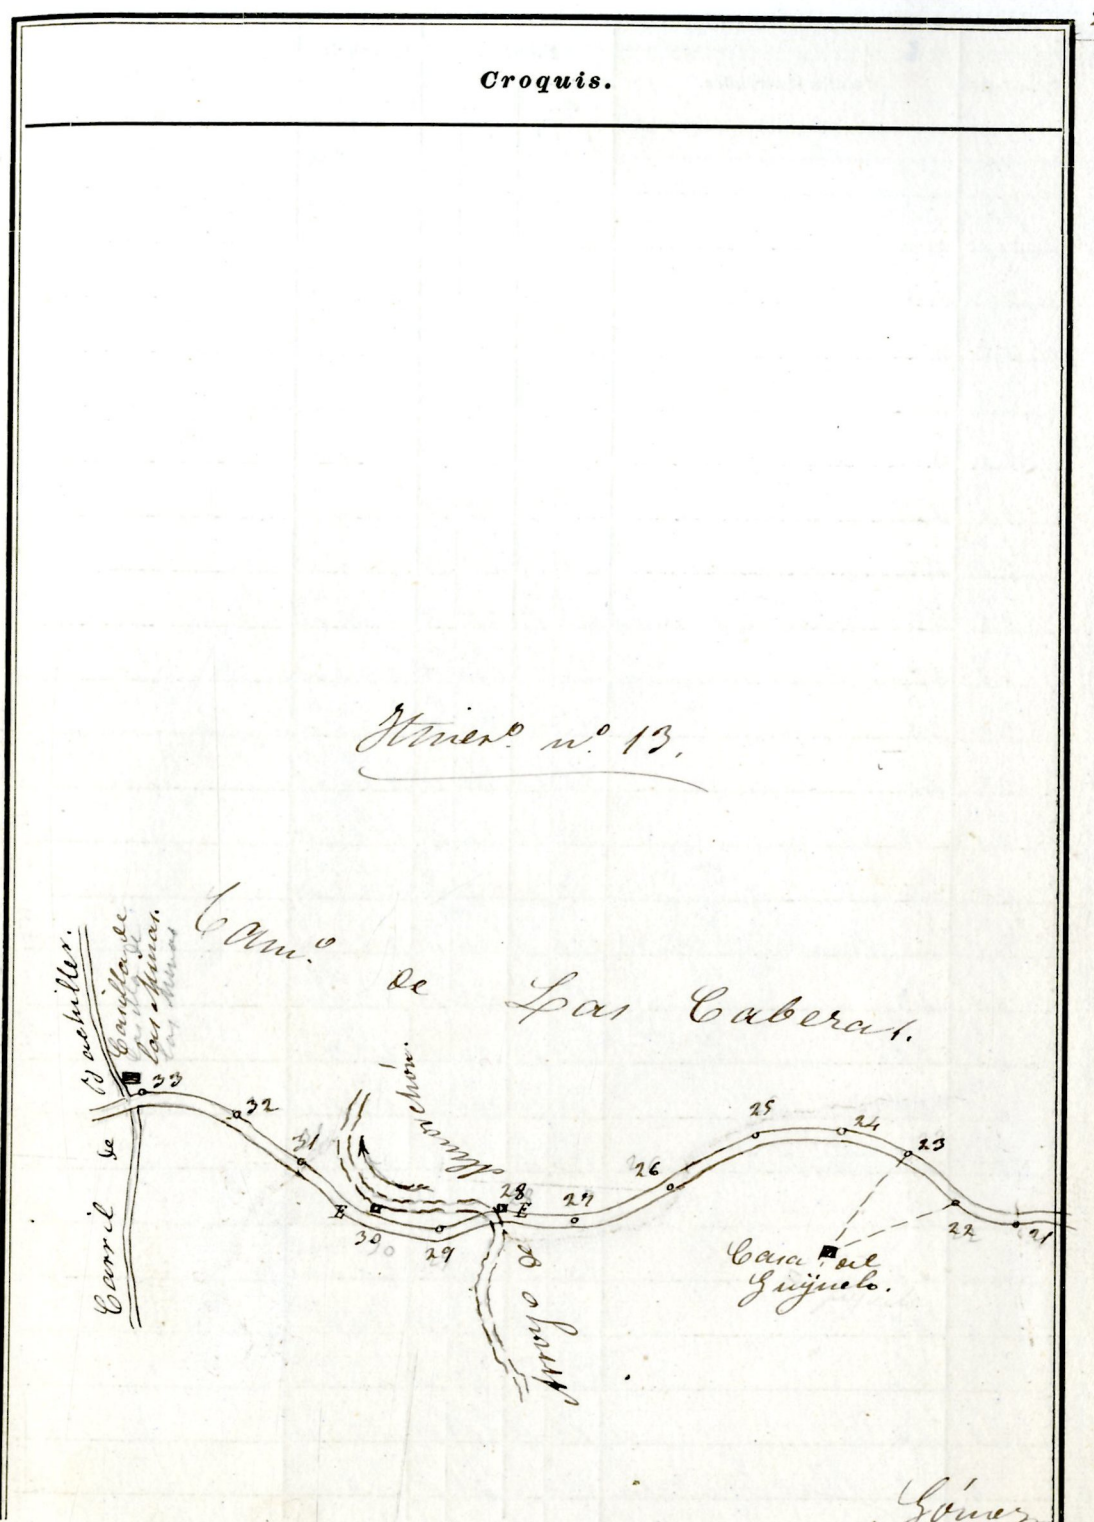 Croquis.
Itiner.º n.º 13.
Cam.º de Las Caberas.
Carril de Bachiller.
Casilla de
las Minas.
33
32
31
E
30
29
28
E
27
26
25
24
23
22
21
Arroyo de Almorchón.
Casa del
Guijuelo.
Gómez